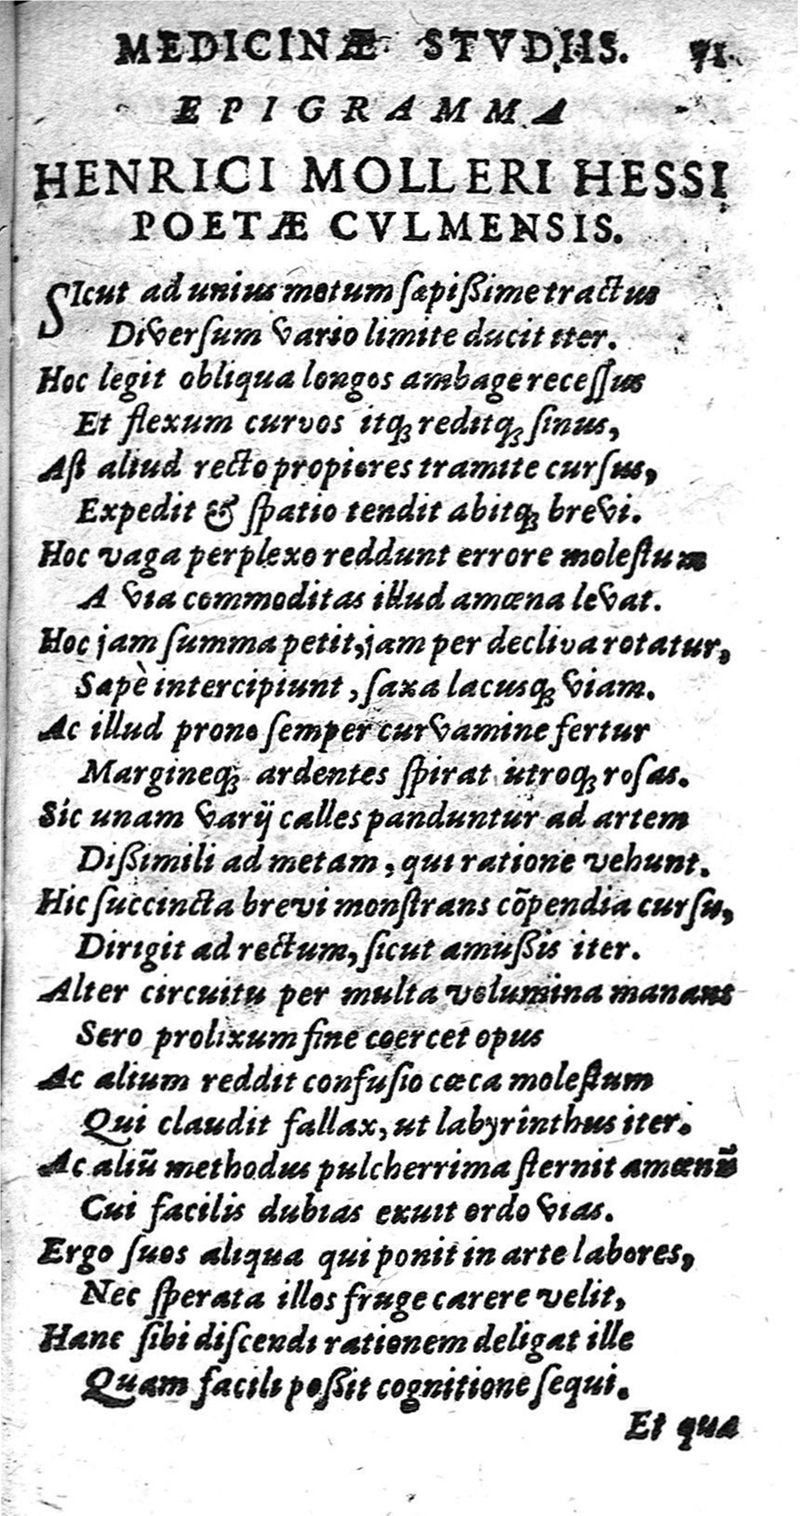 MEDICINÆ STVDIIS. 71.
EPIGRAMMA
HENRICI MOLLERI HESSI
POETÆ CVLMENSIS.
SIcut ad unius motum ſæpißime tractus
Diverſum vario limite ducit iter.
Hoc legit obliqua longos ambage receſſus
Et flexum curvos itq́; reditq́; ſinus,
Aſt aliud recto propiores tramite curſus,
Expedit & ſpatio tendit abitq́; brevi.
Hoc vaga perplexo reddunt errore moleſtum
A via commoditas illud amœna levat.
Hoc jam ſumma petit, jam per decliva rotatur,
Sæpè intercipiunt, ſaxa lacusq́; viam.
Ac illud prono ſemper curvamine fertur
Margineq́; ardentes ſpirat utroq́; roſas.
Sic unam varij calles panduntur ad artem
Dißimili ad metam, qui ratione vehunt.
Hic ſuccincta brevi monſtrans cõpendia curſu,
Dirigit ad rectum, ſicut amußis iter.
Alter circuitu per multa volumina manans
Sero prolixum fine coercet opus
Ac alium reddit confuſio cæca moleſtum
Qui claudit fallax, ut labyrinthus iter.
Ac aliũ methodus pulcherrima ſternit amœnũ
Cui facilis dubias exuit ordo vias.
Ergo ſuos aliqua qui ponit in arte labores,
Nec ſperata illos fruge carere velit,
Hanc ſibi diſcendi rationem deligat ille
Quam facili poßit cognitione ſequi.
Et qua